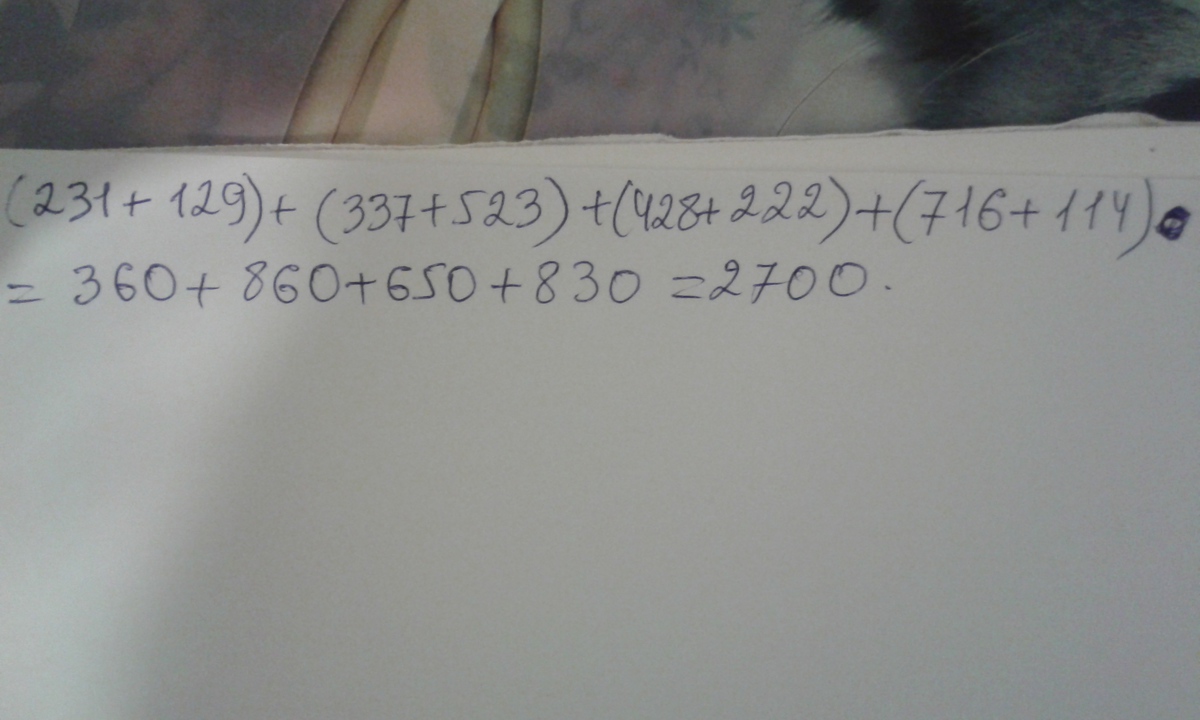 (231+129)+(337+523)+(428+222)+(716+114)
= 360+860+650+830 =2700.